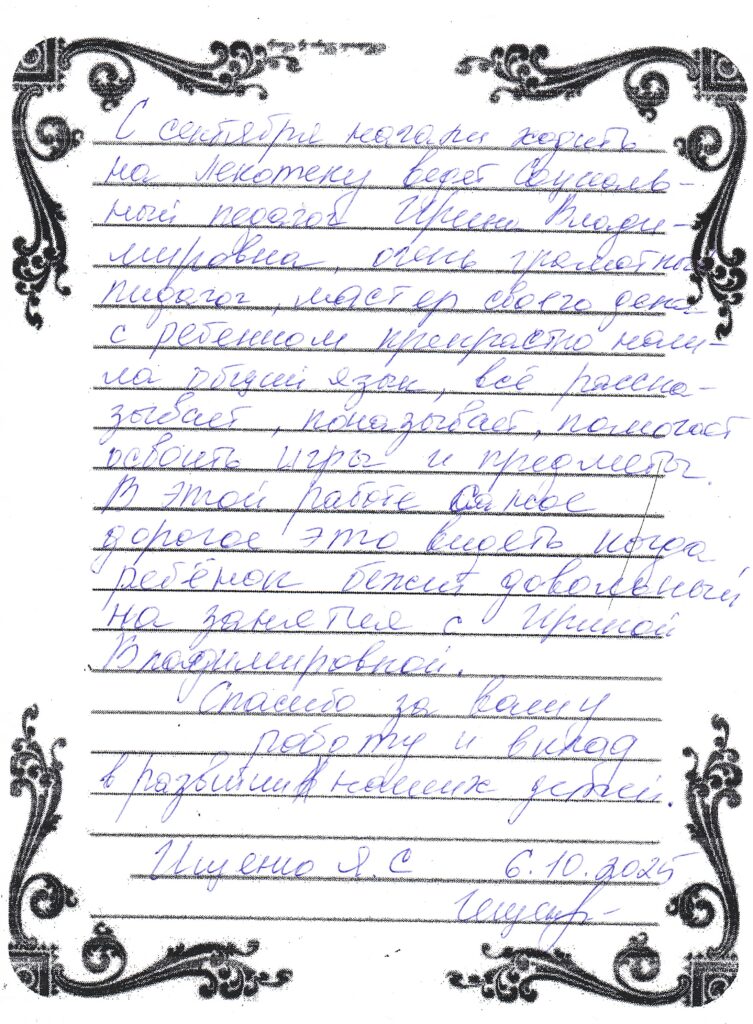 С сентября начали ходить
на лекотеку ведёт Социаль-
ный педагог Ирина Влади-
мировна, очень грамотный
пидагог, мастер своего дела
с ребенком прекрастно нали-
ла общий язык, всё расска-
зывает, показывает, помогает
освоить игры и предметы.
В этой работе самое
дорогое это видеть когда
ребёнок бежит довольный
на занятия с Ириной
Владимировной.
Спасибо за вашу
работу и вклад
в развитии наших детей.
Ищенко Я.С 6.10.2025